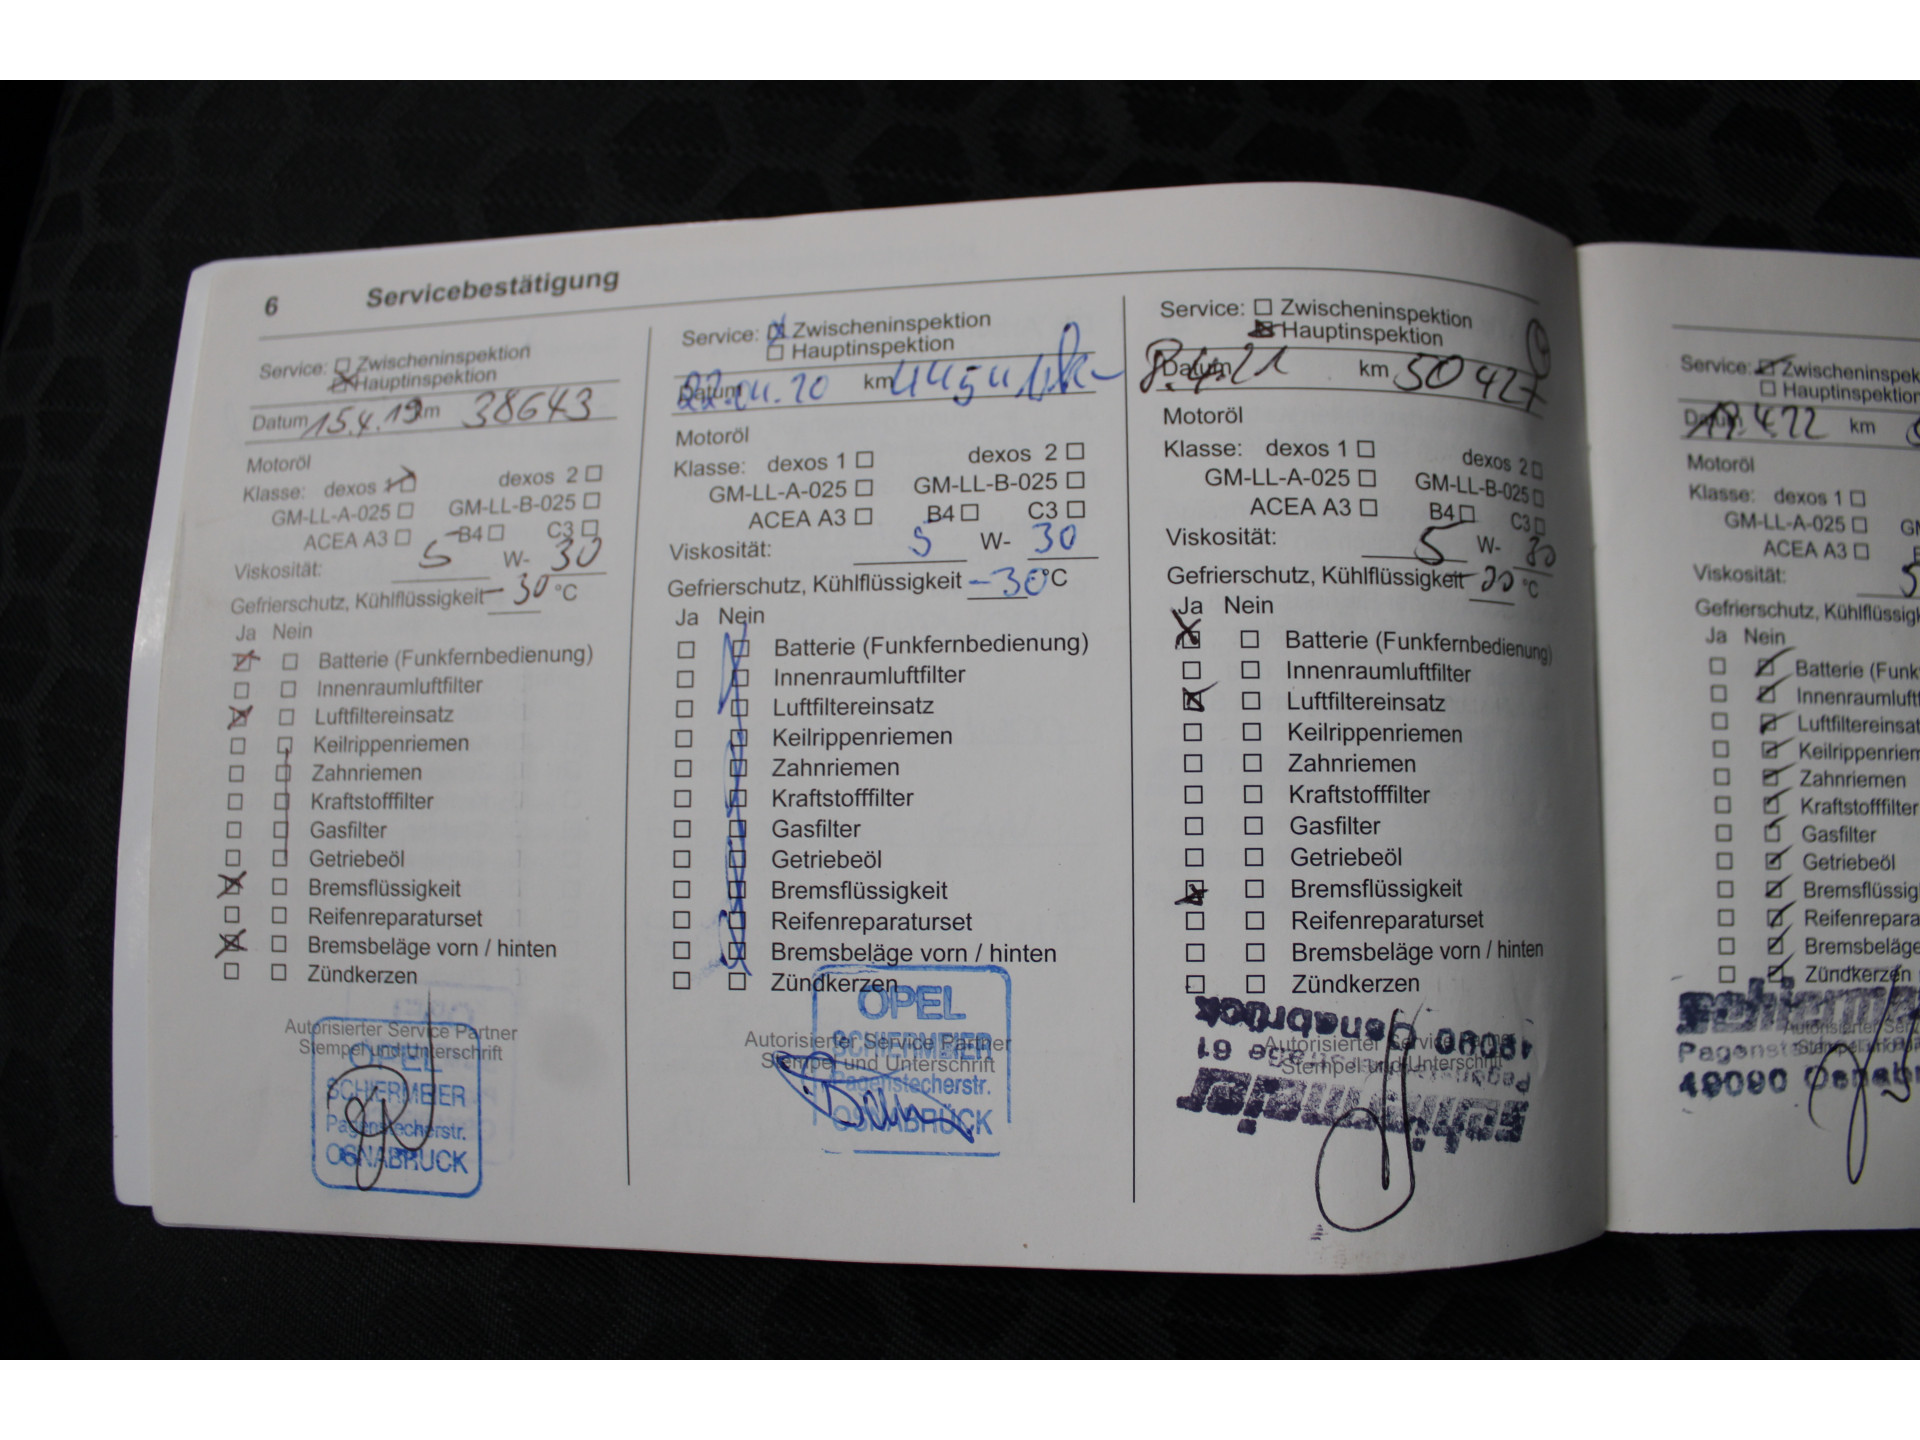 6 Servicebestätigung
Service: Zwischeninspektion
Hauptinspektion
Datum 15.4.19 km 38643
Motoröl
Klasse: dexos 1 dexos 2
GM-LL-A-025 GM-LL-B-025
ACEA A3 B4 C3
Viskosität: 5 W- 30
Gefrierschutz, Kühlflüssigkeit -30 °C
Ja Nein
Batterie (Funkfernbedienung)
Innenraumluftfilter
Luftfiltereinsatz
Keilrippenriemen
Zahnriemen
Kraftstofffilter
Gasfilter
Getriebeöl
Bremsflüssigkeit
Reifenreparaturset
Bremsbeläge vorn / hinten
Zündkerzen
Autorisierter Service Partner
Stempel und Unterschrift
OPEL
SCHIERMEIER
Pagenstecherstr.
OSNABRÜCK
Service: Zwischeninspektion
Hauptinspektion
Datum 22.04.20 km
Motoröl
Klasse: dexos 1 dexos 2
GM-LL-A-025 GM-LL-B-025
ACEA A3 B4 C3
Viskosität: 5 W- 30
Gefrierschutz, Kühlflüssigkeit -30 °C
Ja Nein
Batterie (Funkfernbedienung)
Innenraumluftfilter
Luftfiltereinsatz
Keilrippenriemen
Zahnriemen
Kraftstofffilter
Gasfilter
Getriebeöl
Bremsflüssigkeit
Reifenreparaturset
Bremsbeläge vorn / hinten
Zündkerzen
OPEL
Autorisierter Service Partner
SCHIERMEIER
Stempel und Unterschrift
Pagenstecherstr.
OSNABRÜCK
Service: Zwischeninspektion
Hauptinspektion
Datum 8.4.21 km 50427
Motoröl
Klasse: dexos 1 dexos 2
GM-LL-A-025 GM-LL-B-025
ACEA A3 B4 C3
Viskosität: 5 W- 30
Gefrierschutz, Kühlflüssigkeit °C
Ja Nein
Batterie (Funkfernbedienung)
Innenraumluftfilter
Luftfiltereinsatz
Keilrippenriemen
Zahnriemen
Kraftstofffilter
Gasfilter
Getriebeöl
Bremsflüssigkeit
Reifenreparaturset
Bremsbeläge vorn / hinten
Zündkerzen
Autorisierter Service
Stempel und Unterschrift
Schiermeier
61
49090 Osnabrück
Service: Zwischeninspek
Hauptinspektion
Datum 19.4.22 km
Motoröl
Klasse: dexos 1
GM-LL-A-025 GM
ACEA A3
Viskosität: 5
Gefrierschutz, Kühlflüssigk
Ja Nein
Batterie (Funk
Innenraumluft
Luftfiltereinsat
Keilrippenriem
Zahnriemen
Kraftstofffilter
Gasfilter
Getriebeöl
Bremsflüssig
Reifenrepara
Bremsbeläge
Zündkerzen
Schierme
Autorisierter Serv
Pagenst
49090 Osnabr